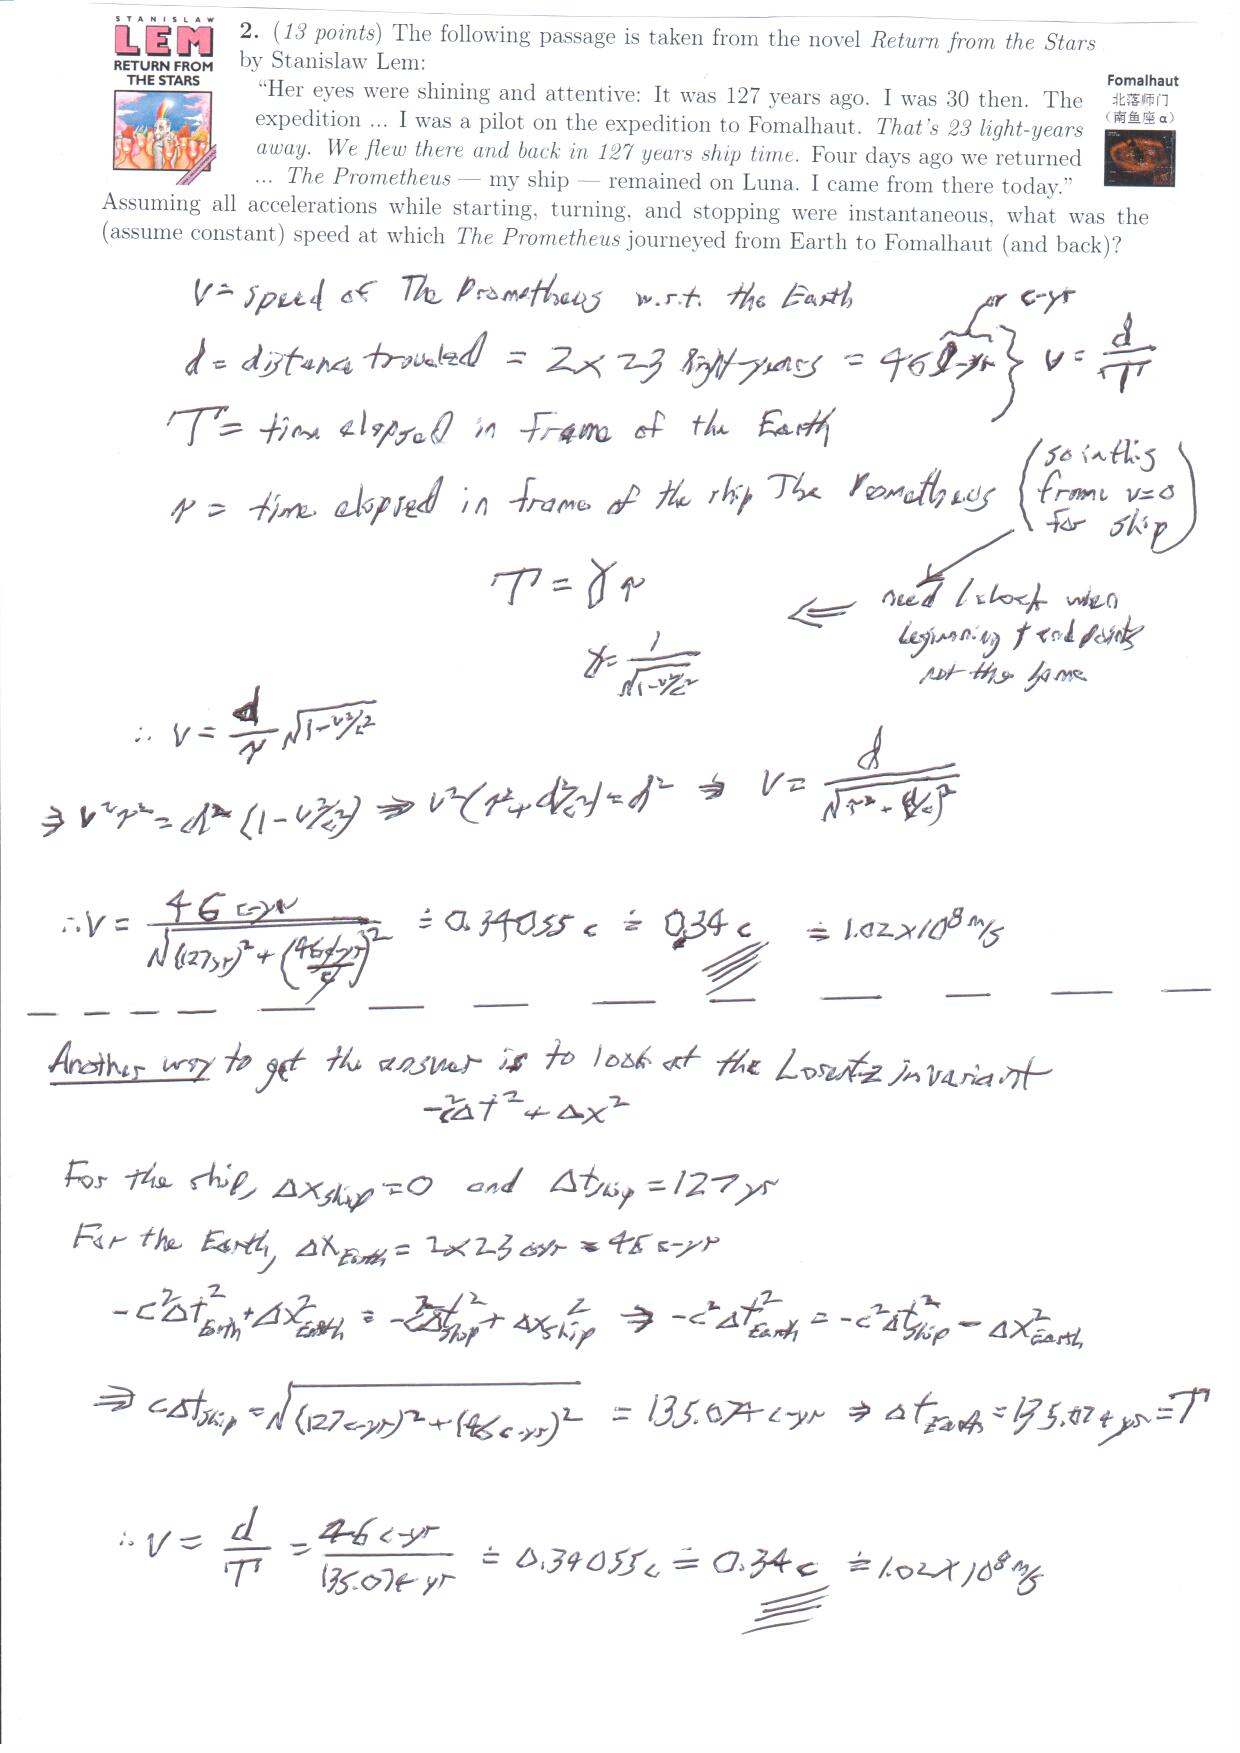 STANISLAW
LEM
RETURN FROM
THE STARS
2. (13 points) The following passage is taken from the novel Return from the Stars
by Stanislaw Lem:
"Her eyes were shining and attentive: It was 127 years ago. I was 30 then. The
expedition ... I was a pilot on the expedition to Fomalhaut. That's 23 light-years
away. We flew there and back in 127 years ship time. Four days ago we returned
... The Prometheus — my ship — remained on Luna. I came from there today."
Fomalhaut
北落师门
(南鱼座α)
Assuming all accelerations while starting, turning, and stopping were instantaneous, what was the
(assume constant) speed at which The Prometheus journeyed from Earth to Fomalhaut (and back)?
V = speed of The Prometheus w.r.t. the Earth
or c-yr
d = distance traveled = 2 × 23 light-years = 46 l-yr } V = d/T
T = time elapsed in frame of the Earth
τ = time elapsed in frame of the ship The Prometheus (so in this frame v=0 for ship)
T = γτ
⇐ need 1 clock when
beginning + end points
not the same
γ = 1/√(1-v²/c²)
∴ V = d/τ √(1-v²/c²)
⇒ V²τ² = d²(1-v²/c²) ⇒ V²(τ²+d²/c²) = d² ⇒ V = d/√(τ²+(d/c)²)
∴ V = 46 c-yr/√((127yr)²+(46c-yr/c)²) ≐ 0.34055 c ≐ 0.34 c ≐ 1.02×10⁸ m/s
Another way to get the answer is to look at the Lorentz invariant
-c²Δt² + Δx²
For the ship, Δx_ship = 0 and Δt_ship = 127 yr
For the Earth, Δx_Earth = 2×23 c-yr = 46 c-yr
-c²Δt²_Earth + Δx²_Earth = -c²Δt²_ship + Δx_ship² ⇒ -c²Δt²_Earth = -c²Δt²_ship - Δx²_Earth
⇒ cΔt_ship = √((127 c-yr)²+(46 c-yr)²) = 135.074 c-yr ⇒ Δt_Earth = 135.074 yr = T
∴ V = d/T = 46 c-yr/135.074 yr ≐ 0.34055 c ≐ 0.34 c ≐ 1.02×10⁸ m/s